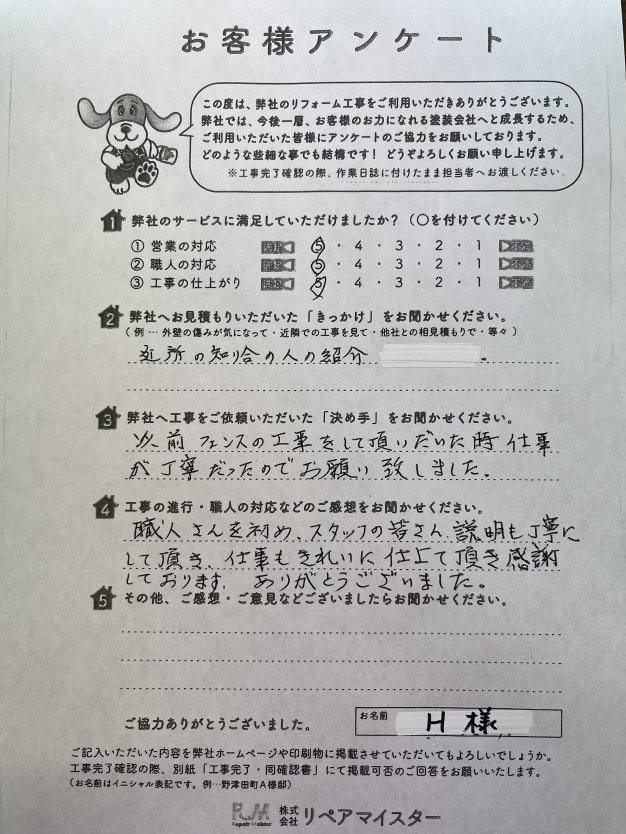 お客様アンケート
この度は、弊社のリフォーム工事をご利用いただきありがとうございます。
弊社では、今後一層、お客様のお力になれる塗装会社へと成長するため、
ご利用いただいた皆様にアンケートのご協力をお願いしております。
どのような些細な事でも結構です！ どうぞよろしくお願い申し上げます。
※工事完了確認の際、作業日誌に付けたまま担当者へお渡しください。
1 弊社のサービスに満足していただけましたか？（〇を付けてください）
① 営業の対応 満足 5 ・ 4 ・ 3 ・ 2 ・ 1 不満
② 職人の対応 満足 5 ・ 4 ・ 3 ・ 2 ・ 1 不満
③ 工事の仕上がり 満足 5 ・ 4 ・ 3 ・ 2 ・ 1 不満
2 弊社へお見積もりいただいた「きっかけ」をお聞かせください。
（ 例 … 外壁の傷みが気になって・近隣での工事を見て・他社との相見積もりで・等々 ）
近所の知り合の人の紹介 。
3 弊社へ工事をご依頼いただいた「決め手」をお聞かせください。
以前フェンスの工事をして頂いだいた時仕事
が丁寧だったのでお願い致しました。
4 工事の進行・職人の対応などのご感想をお聞かせください。
職人さんを初め、スタッフの皆さん説明も丁寧に
して頂き、仕事もきれいに仕上て頂き感謝
しております。ありがとうございました。
5 その他、ご感想・ご意見などございましたらお聞かせください。
ご協力ありがとうございました。
お名前 H 様
ご記入いただいた内容を弊社ホームページや印刷物に掲載させていただいてもよろしいでしょうか。
工事完了確認の際、別紙「工事完了・同確認書」にて掲載可否のご回答をお願いいたします。
（お名前はイニシャル表記です。例…野津田町A様邸）
RM Repair Meister 株式会社 リペアマイスター